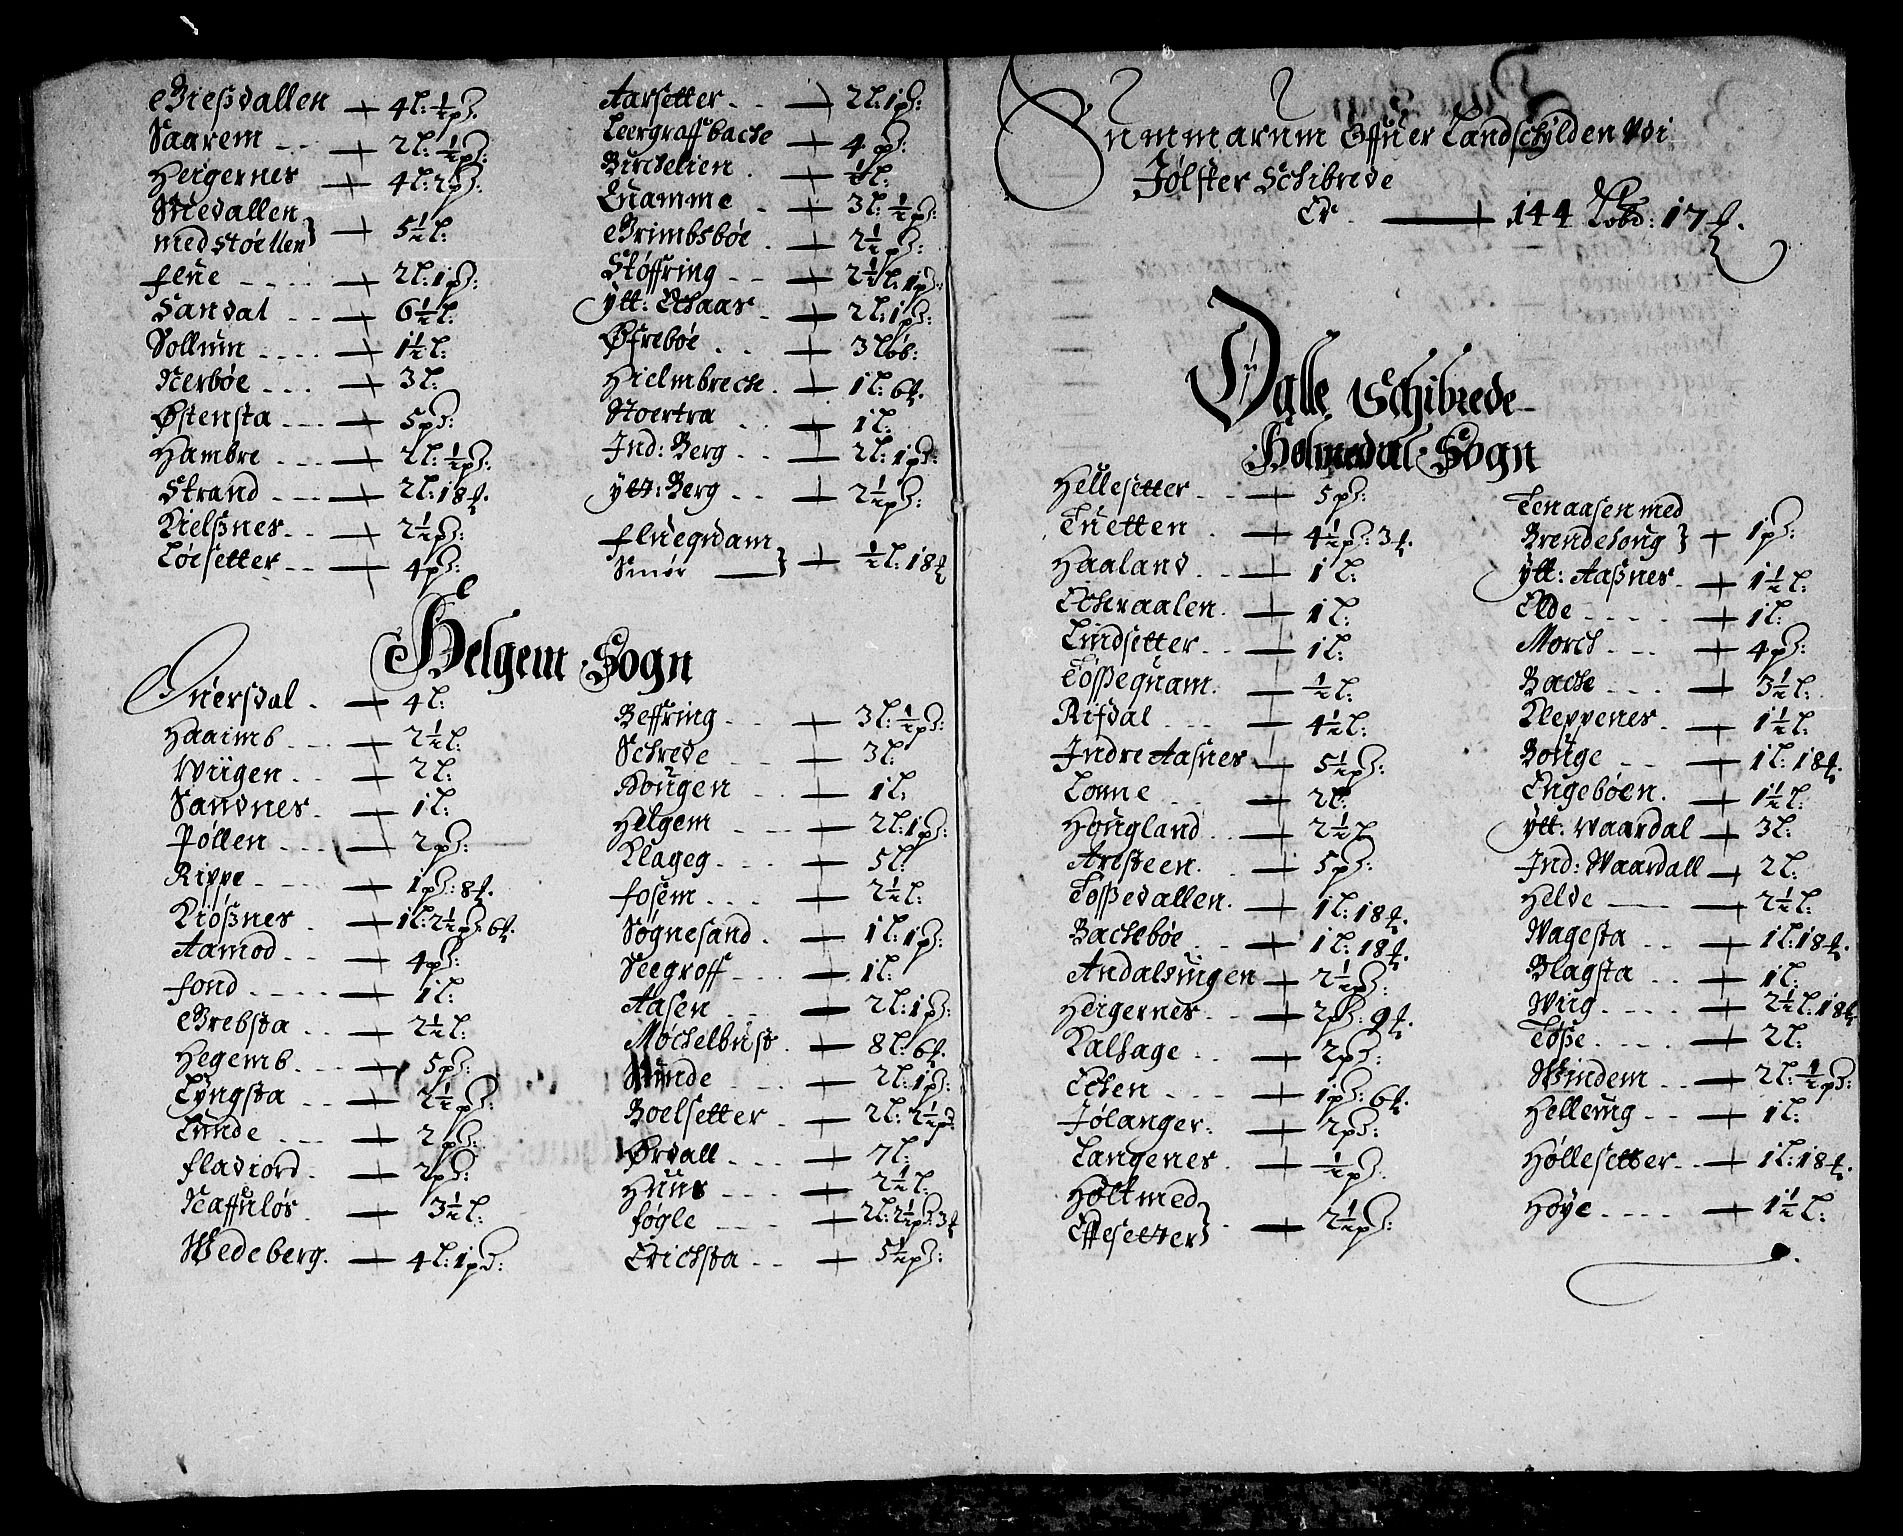 Gießdallen 4 l: ½ pd:
Saarem 2 l: ½ pd:
Heigernes 4 l: 2 pd:
Medallen
med støellen} 5½ l:
flue 2 l: 1 pd:
Sandal 6½ l:
Sollum 1½ l:
Nerbøe 3 l:
Østensta 5 pd:
Hambre 2 l: ½ pd:
Strand 2 l: 18 ₰.
Kielßnes 2½ pd:
Løesetter 4 pd:
Aarsetter 2 l: 1 pd:
Leergraffbache 4 pd:
Birchelien ½ l:
Quamme 3 l: ½ pd:
Grimbsbøe 2½ pd:
Støffring 2½ l: 1 pd:
ytt: Ochaas 2 l: 1 pd:
Øfrebøe 3 løb:
Hielmbrech 1 l: 6 ₰.
Stoertra 1 l:
Ind: Berg 2 l: 1 pd:
ytt: Berg 2½ pd:
flueqvam
Smør} ½ l: 18 ₰
Helgem Sogn
Ouersdal 4 l:
Haaimb 2½ l:
Wiigen 2 l:
Sandnes 1 l:
Pøllen 2 pd:
Rippe 1 pd: 8 ₰.
Kiøßnes 1 l: 2½ pd: 6 ₰
Aamod 4 pd:
fond 1 l:
Grebsta 2½ l:
Hegemb 5 pd:
Lyngsta 2½ pd:
Lunde 2 pd:
fladiord 2 pd:
Naffsløs 3½ l:
Wedeberg 4 l: 1 pd:
Beffring 3 l: ½ pd:
Schrede 3 l:
Hougen 1 l:
Helgem 2 l: 1 pd:
Klageg 5 l:
fosem 2½ l:
Søgnesand 1 l: 1 pd:
Seegroff 1 l:
Aasen 2 l: 1 pd:
Møchelbust 8 l: 6 ₰.
Sunde 2 l: 1 pd:
Boelsetter 2 l: 2½ pd
Ørdall 7 l:
Huus 2½ l:
føgle 2 l: 2½ pd: 3 ₰
Erichsta 5½ pd:
Summarum Offuer Landschylden Vdi
Jølster Schibrede
Er 144 Løbd: 17 ₰.
Dalle Schibrede
Holmedal Sogn
Hellesetter 5 pd:
Tuetten 4½ pd: 3 ₰.
Haaland 1 l:
Ochraalen 1 l:
Lindsetter 1 l:
Tøßequam ½ l:
Rifdal 4½ l:
Indre Aasnes 5½ pd:
Lonne 2 l:
Hougland 2½ l:
Arsteen 5 pd:
Toßedallen 1 l: 18 ₰.
Bachebøe 1 l: 18 ₰
Andalsuigen 2½ pd:
Heigernes 2 pd: 9 ₰.
Kalhage 2 pd:
Echen 1 pd: 6 ₰.
Jølanger 2 pd:
Langenes ½ pd:
Holt med
Effesetter} 2½ pd:
Tenaasen med
Brendehoug} 1 pd:
ytt: Aaßnes 1½ l:
Elde 1 l:
Morch 4 pd:
Bache 3½ l:
Kleppenes 1½ l:
Bouge 1 l: 18 ₰.
Engebøen 1½ l:
ytt: Waardal 3 l:
Ind: Waardall 2 l:
Helde 2½ l:
Wagesta 1 l: 18 ₰.
Blagsta 1 l:
Wiig 2½ l: 18 ₰
Tøße 2 l:
Windem 2 l: ½ pd:
Helleuig 1 l:
Høllesetter 1 l: 18 ₰.
Høye 1½ l: